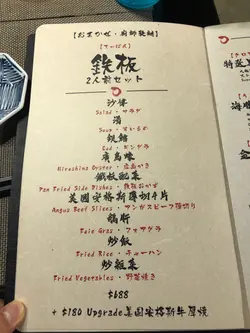 【おまかせ・廚師發辦】
【てっぱん】
鉄板
2人前セット
沙律
Salad・サラダ
湯
Soup・すいもの
銀鱈
Cod・ギンダラ
廣島蠔
Hiroshima Oyster・広島かき
鐵板配菜
Pan Fried Side Dishes・鉄板おかず
美國安格斯薄切牛片
Angus Beef Slices・アンガスビーフ薄切り
鵝肝
Foie Gras・フォアグラ
炒飯
Fried Rice・チャーハン
炒雜菜
Fried Vegetables・野菜焼き
$688
+ $180 Upgrade美国安格斯牛厚焼
特
海